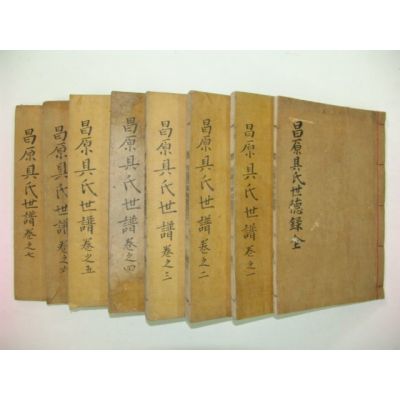 昌原具氏世德錄 全
昌原具氏世譜 卷之一
昌原具氏世譜 卷之二
昌原具氏世譜 卷之三
昌原具氏世譜 卷之四
昌原具氏世譜 卷之五
昌原具氏世譜 卷之六
昌原具氏世譜 卷之七